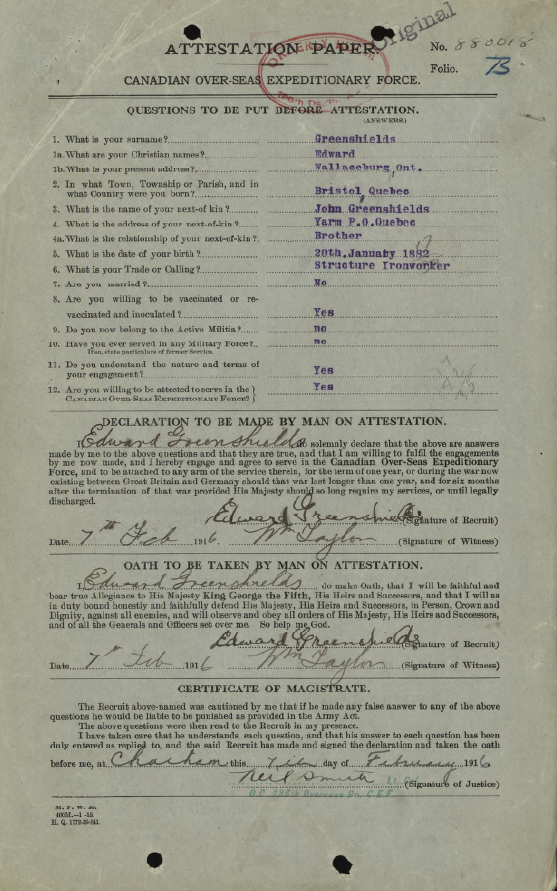 Original
ATTESTATION PAPER.
No. 880018
Folio.
CANADIAN OVER-SEAS EXPEDITIONARY FORCE.
QUESTIONS TO BE PUT BEFORE ATTESTATION.
(ANSWERS)
1. What is your surname? Greenshields
1a. What are your Christian names? Edward
1b. What is your present address? Wallaceburg, Ont.
2. In what Town, Township or Parish, and in
what Country were you born? Bristol Quebec
3. What is the name of your next-of kin? John Greenshields
4. What is the address of your next-of-kin? Yarm P.O. Quebec
4a. What is the relationship of your next-of-kin? Brother
5. What is the date of your birth? 20th. January 1882
6. What is your Trade or Calling? Structure Ironworker
7. Are you married? No
8. Are you willing to be vaccinated or re-
vaccinated and inoculated? Yes
9. Do you now belong to the Active Militia? no
10. Have you ever served in any Military Force? no
If so, state particulars of former Service.
11. Do you understand the nature and terms of
your engagement? Yes
12. Are you willing to be attested to serve in the } Yes
CANADIAN OVER-SEAS EXPEDITIONARY FORCE? }
DECLARATION TO BE MADE BY MAN ON ATTESTATION.
I, Edward Greenshields, do solemnly declare that the above are answers
made by me to the above questions and that they are true, and that I am willing to fulfil the engagements
by me now made, and I hereby engage and agree to serve in the Canadian Over-Seas Expeditionary
Force, and to be attached to any arm of the service therein, for the term of one year, or during the war now
existing between Great Britain and Germany should that war last longer than one year, and for six months
after the termination of that war provided His Majesty should so long require my services, or until legally
discharged.
Edward Greenshields (Signature of Recruit)
Date 7th Feb 1916. Wm Taylor (Signature of Witness)
OATH TO BE TAKEN BY MAN ON ATTESTATION.
I, Edward Greenshields, do make Oath, that I will be faithful and
bear true Allegiance to His Majesty King George the Fifth, His Heirs and Successors, and that I will as
in duty bound honestly and faithfully defend His Majesty, His Heirs and Successors, in Person, Crown and
Dignity, against all enemies, and will observe and obey all orders of His Majesty, His Heirs and Successors,
and of all the Generals and Officers set over me. So help me God.
Edward Greenshields (Signature of Recruit)
Date 7th Feb 1916 Wm Taylor (Signature of Witness)
CERTIFICATE OF MAGISTRATE.
The Recruit above-named was cautioned by me that if he made any false answer to any of the above
questions he would be liable to be punished as provided in the Army Act.
The above questions were then read to the Recruit in my presence.
I have taken care that he understands each question, and that his answer to each question has been
duly entered as replied to, and the said Recruit has made and signed the declaration and taken the oath
before me, at Chatham this 7th day of February 1916
Neil Smith Lt. Col. (Signature of Justice)
O.C. 186th Overseas Bn. C.E.F.
M. F. W. 23.
400M.—1-15.
H. Q. 1772-39-841.